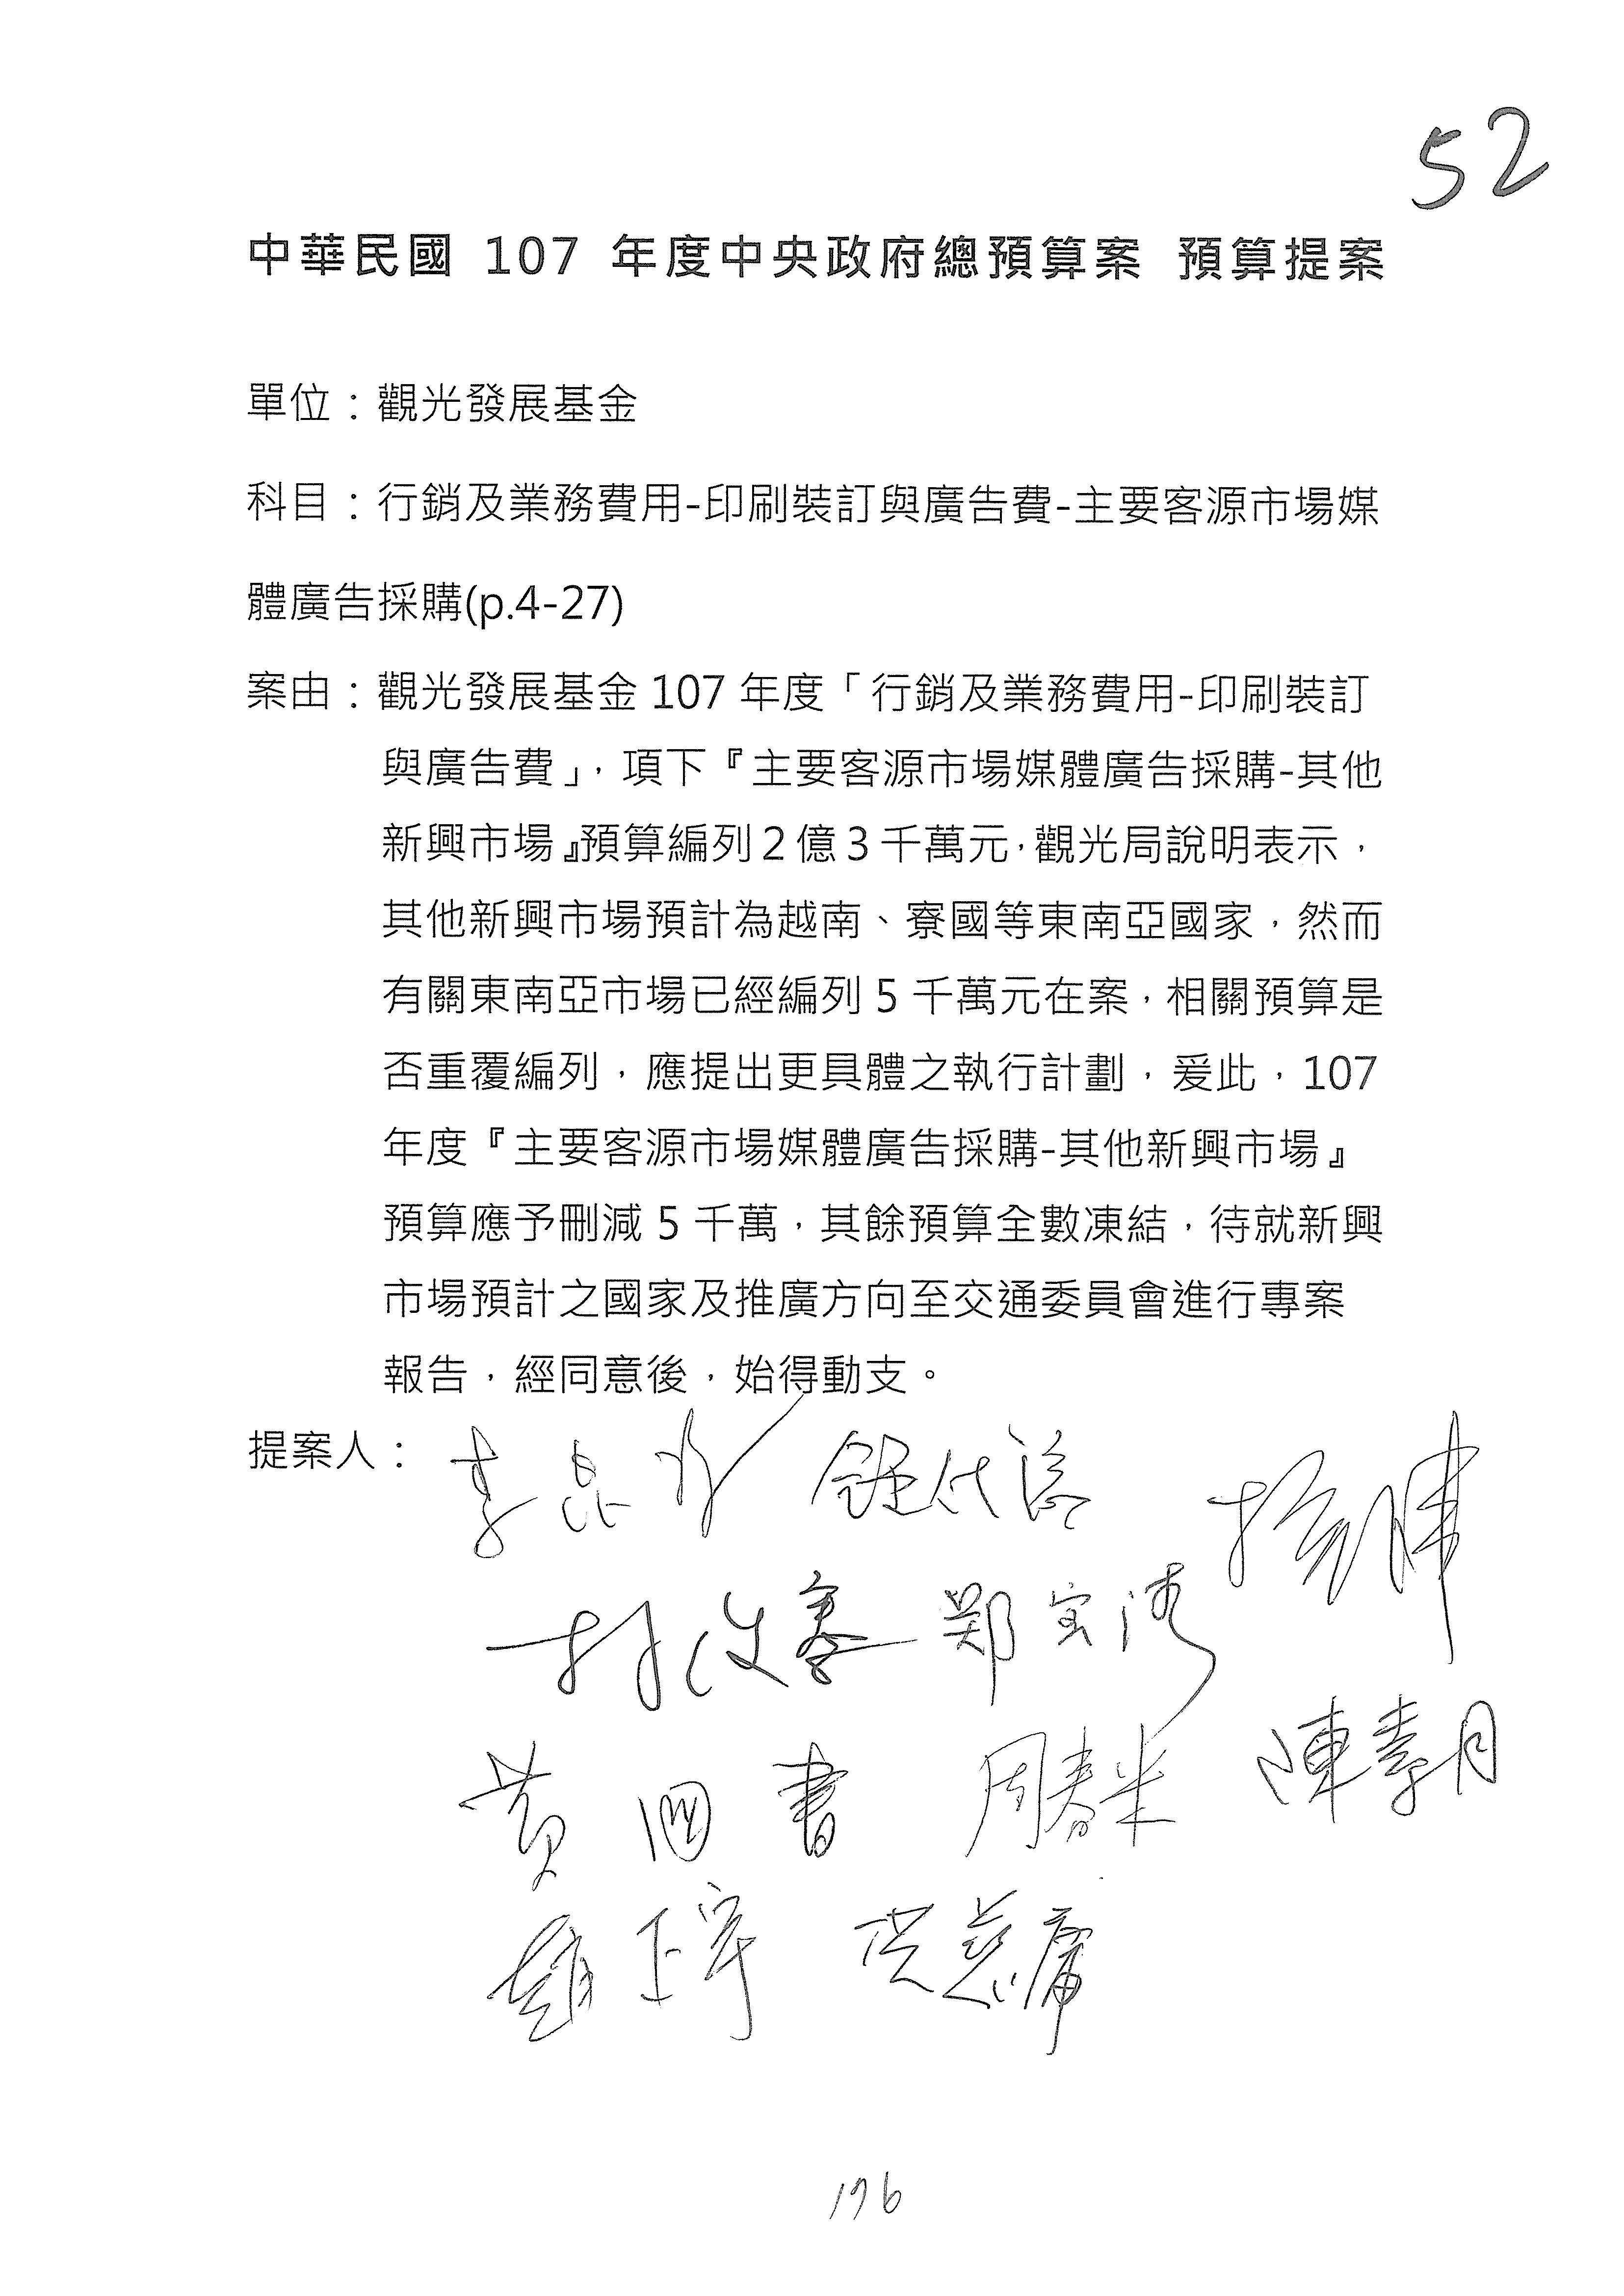 52
中華民國 107 年度中央政府總預算案 預算提案
單位：觀光發展基金
科目：行銷及業務費用-印刷裝訂與廣告費-主要客源市場媒
體廣告採購(p.4-27)
案由：觀光發展基金 107 年度「行銷及業務費用-印刷裝訂
與廣告費」，項下『主要客源市場媒體廣告採購-其他
新興市場』預算編列 2 億 3 千萬元，觀光局說明表示，
其他新興市場預計為越南、寮國等東南亞國家，然而
有關東南亞市場已經編列 5 千萬元在案，相關預算是
否重覆編列，應提出更具體之執行計劃，爰此，107
年度『主要客源市場媒體廣告採購-其他新興市場』
預算應予刪減 5 千萬，其餘預算全數凍結，待就新興
市場預計之國家及推廣方向至交通委員會進行專案
報告，經同意後，始得動支。
提案人：李昆澤
林俊憲 鄭寶清
黃國書 周春米 陳素月
趙正宇 洪慈庸
196